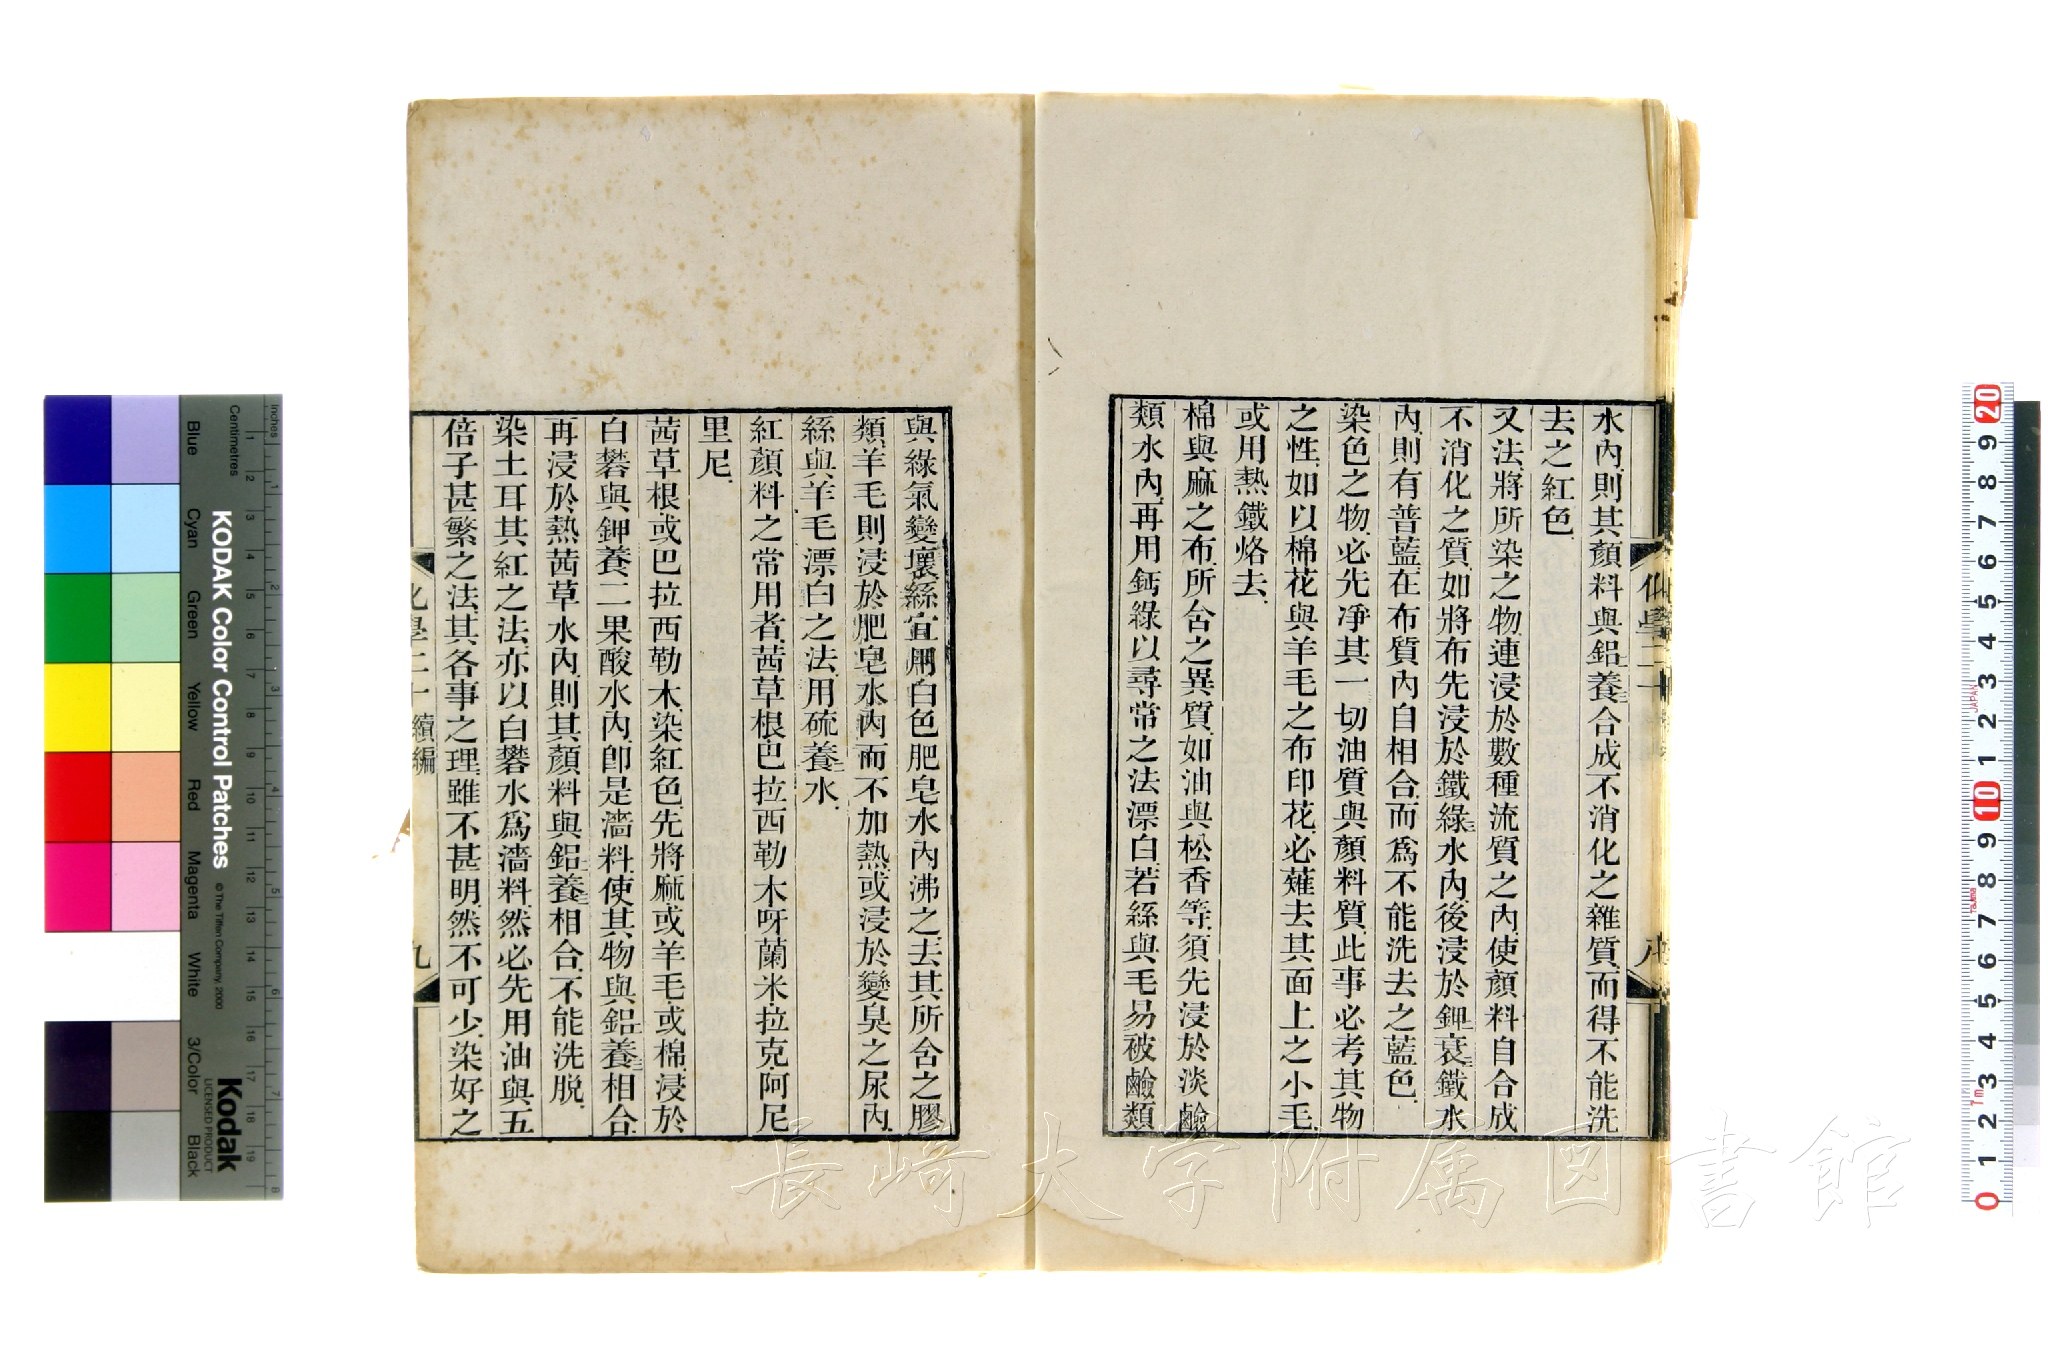 水內則其顏料與鋁養合成不消化之雜質而得不能洗
去之紅色
又法將所染之物連浸於數種流質之內使顏料自合成
不消化之質如將布先浸於鐵綠水內後浸於鉀衰鐵水
內則有普藍在布質內自相合而爲不能洗去之藍色
染色之物必先凈其一切油質與顏料質此事必考其物
之性如以棉花與羊毛之布印花必薙去其面上之小毛
或用熱鐵烙去
棉與麻之布所含之異質如油與松香等須先浸於淡鹼
類水內再用鈣綠以尋常之法漂白若絲與毛易被鹼類
與綠氣變壞絲宜用白色肥皂水內沸之去其所含之膠
類羊毛則浸於肥皂水內而不加熱或浸於變臭之尿內
絲與羊毛漂白之法用硫養水
紅顏料之常用者茜草根巴拉西勒木呀蘭米拉克阿尼
里尼
茜草根或巴拉西勒木染紅色先將麻或羊毛或棉浸於
白礬與鉀養二果酸水內卽是濇料使其物與鋁養相合
再浸於熱茜草水內則其顏料與鋁養相合不能洗脱
染土耳其紅之法亦以白礬水爲濇料然必先用油與五
倍子甚繁之法其各事之理雖不甚明然不可少染好之
化學二十續編
九
長崎大学附属図書館
KODAK Color Control Patches
© The Tiffen Company, 2000
Kodak
LICENSED PRODUCT
Inches
Centimetres
Blue
Cyan
Green
Yellow
Red
Magenta
White
3/Color
Black